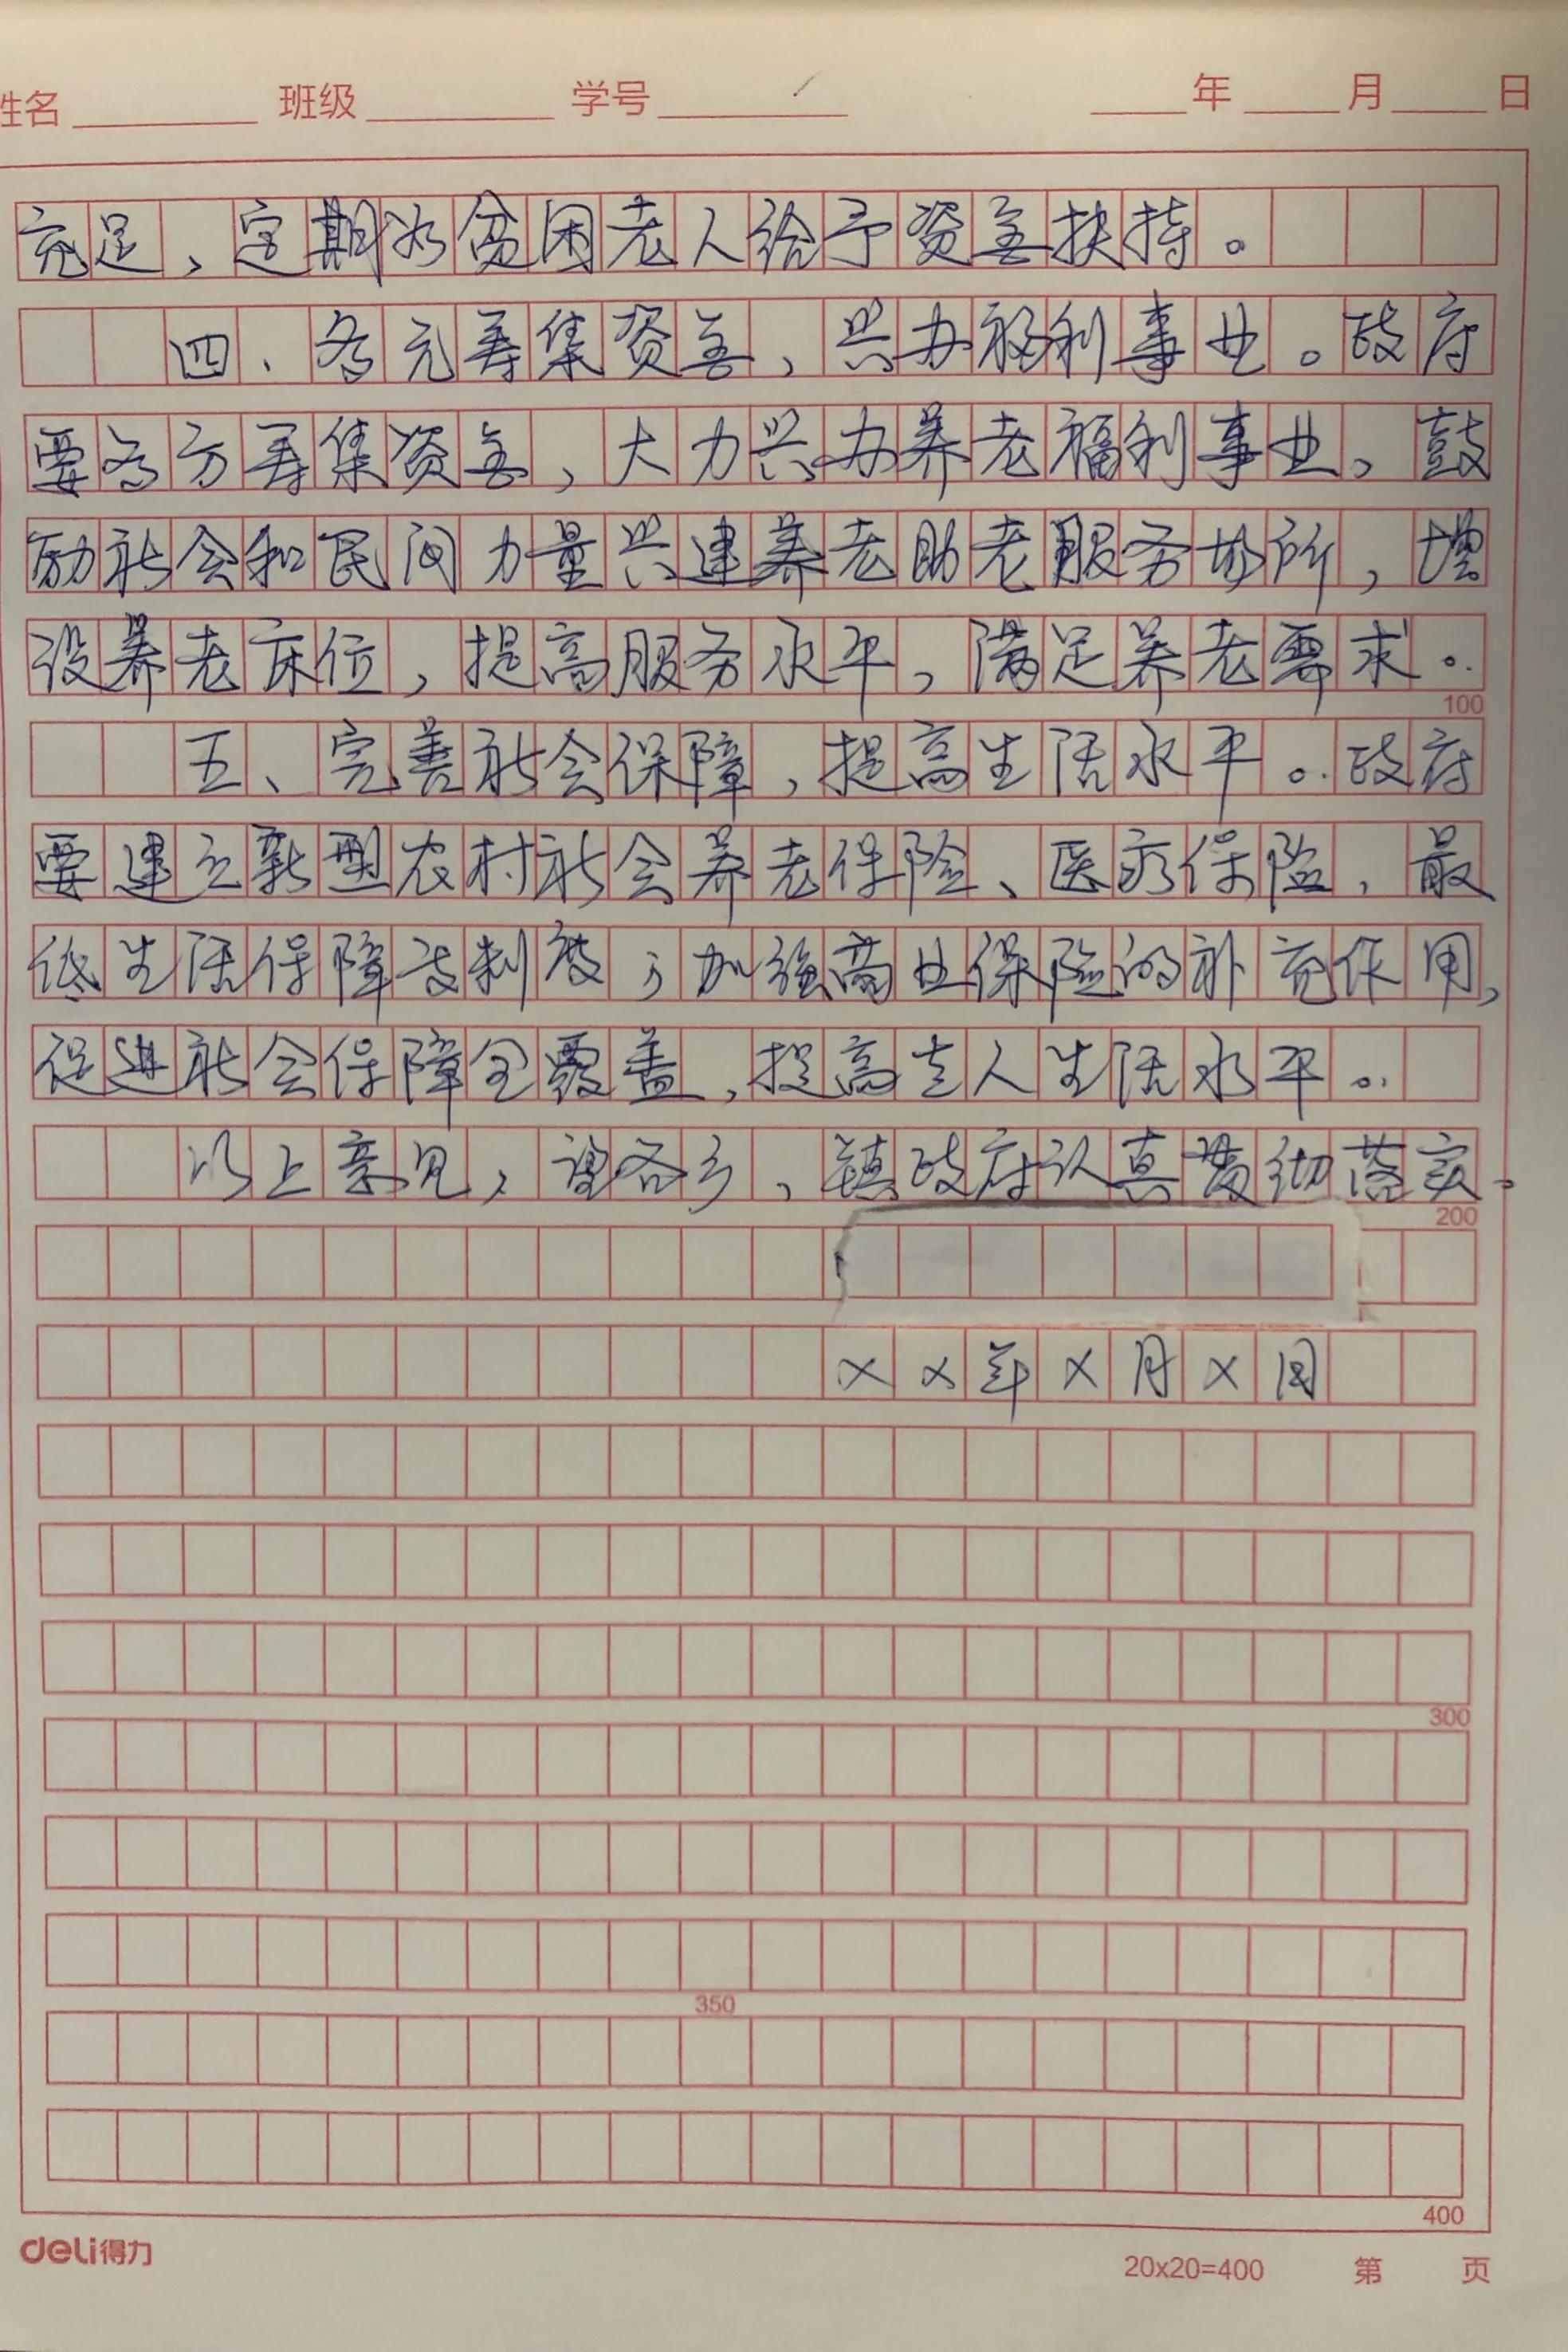 姓名 班级 学号 年 月 日
充足，定期为贫困老人给予资金扶持。
四、多元筹集资金，兴办福利事业。政府
要多方筹集资金，大力兴办养老福利事业。鼓
励社会和民间力量兴建养老助老服务场所，增
设养老床位，提高服务水平，满足养老需求。
100
五、完善社会保障，提高生活水平。政府
要建立新型农村社会养老保险、医疗保险，最
低生活保障及制度；加强商业保险的补充作用，
促进社会保障全覆盖，提高老人生活水平。
以上意见，请各乡、镇政府认真贯彻落实。
200
××年×月×日
300
350
400
deli得力
20x20=400 第 页